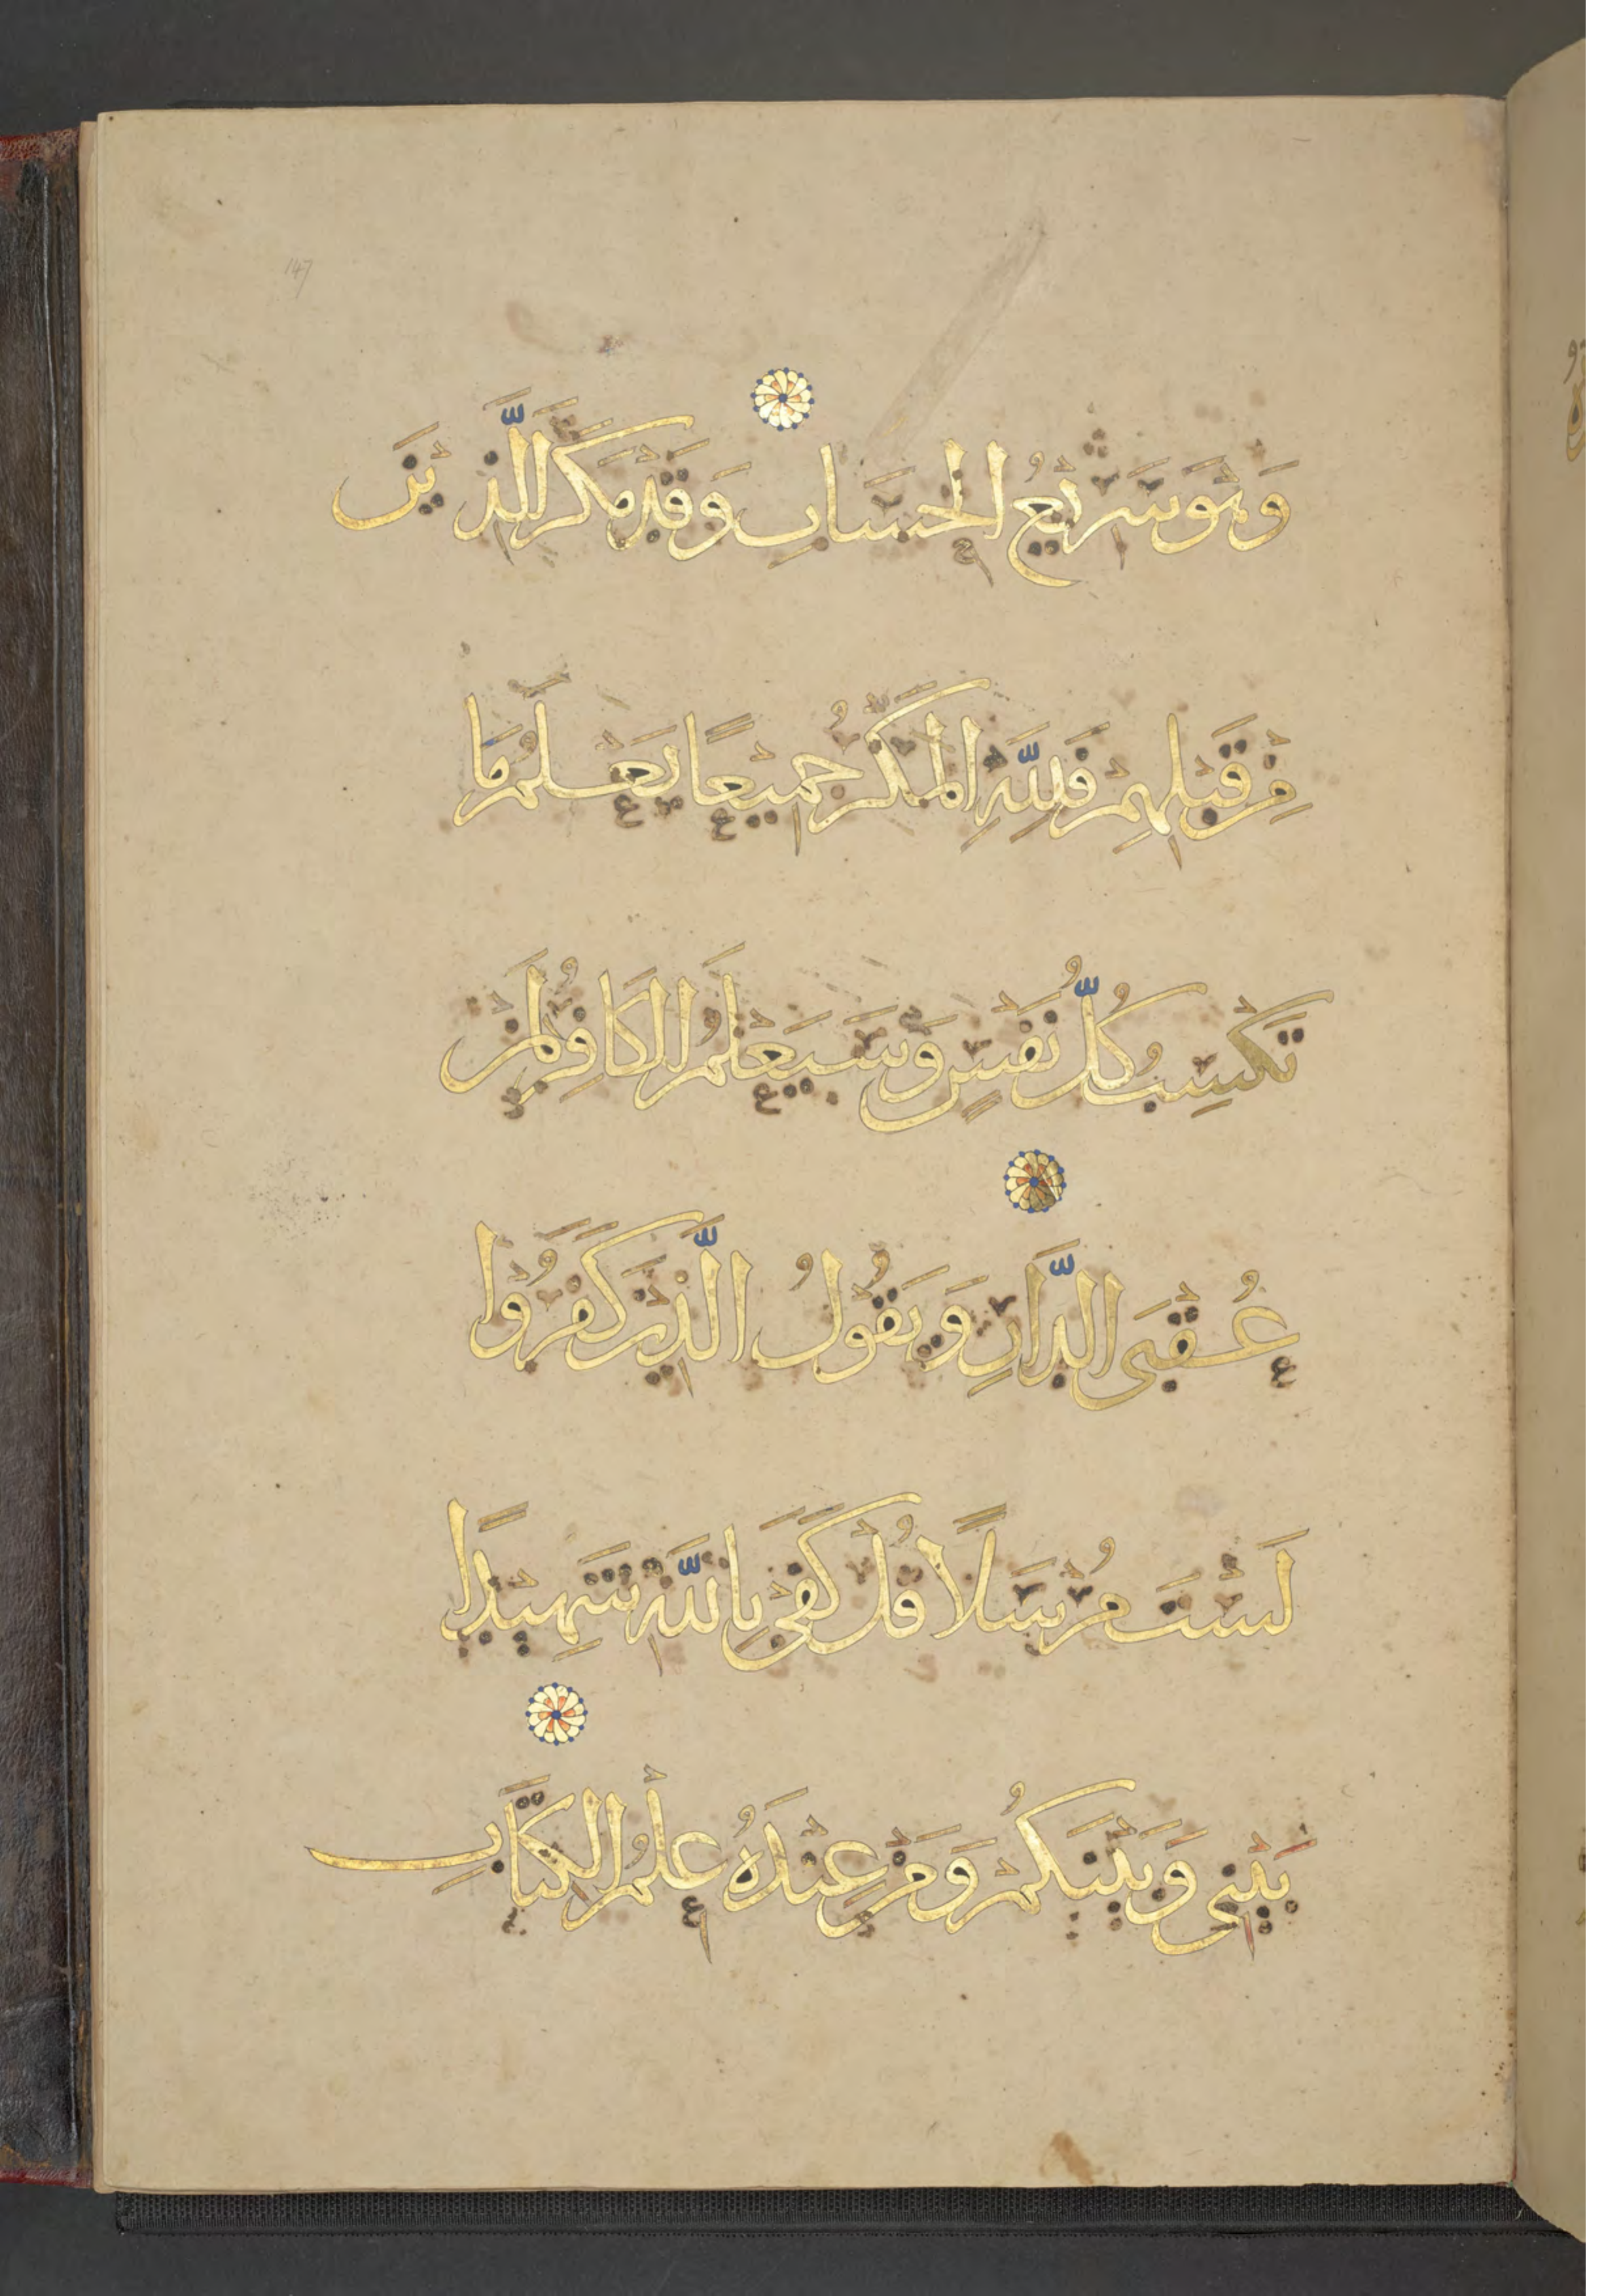 147
وَهُوَ سَرِيْعُ الْحِسَابِ وَقَدْ مَكَرَ الَّذِيْنَ
مِنْ قَبْلِهِمْ فَلِلَّهِ الْمَكْرُ جَمِيْعًا يَعْلَمُ مَا
تَكْسِبُ كُلُّ نَفْسٍ وَسَيَعْلَمُ الْكَافِرُ لِمَنْ
عُقْبَى الدَّارِ وَيَقُوْلُ الَّذِيْنَ كَفَرُوْا
لَسْتَ مُرْسَلًا قُلْ كَفَى بِاللَّهِ شَهِيْدًا
بَيْنِي وَبَيْنَكُمْ وَمَنْ عِنْدَهُ عِلْمُ الْكِتَابِ